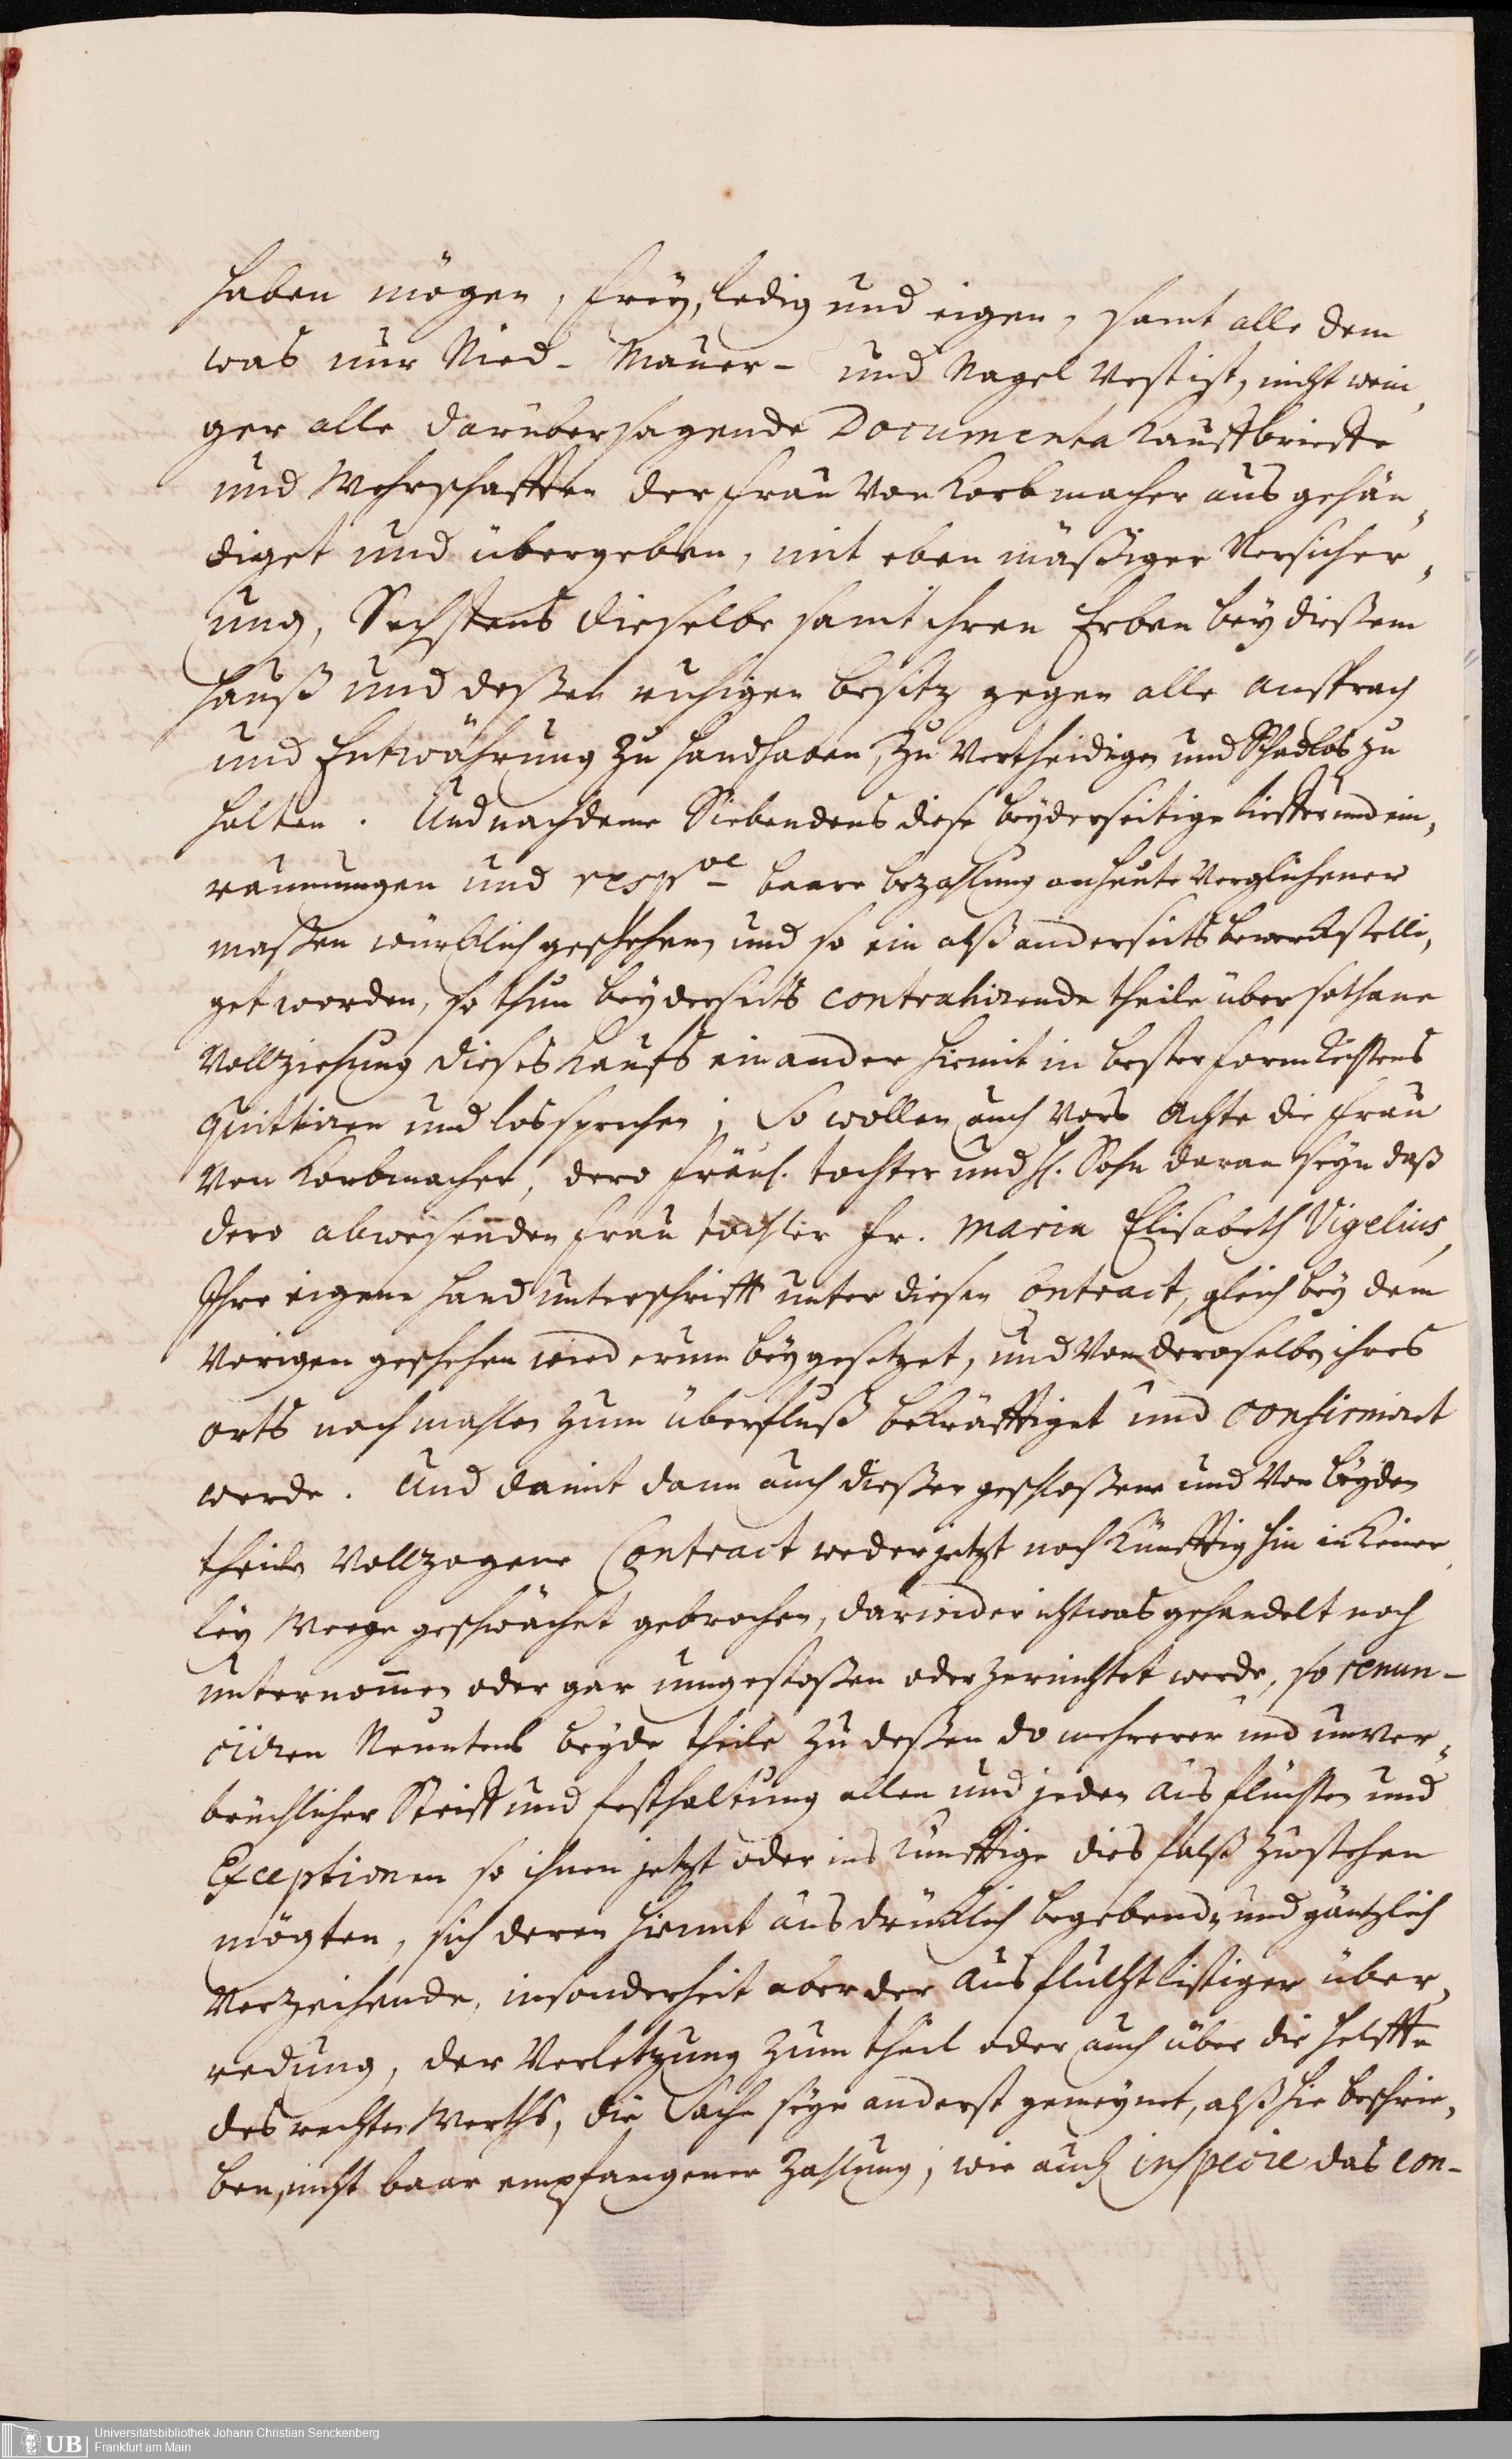 haben mögen, freÿ, ledig und eigen, samt alle dem
was nur Nied- Mauer- und Nagel Vest ist, nicht weni„
ger alle darüber sagende Documenta Kauffbrieffe
und Wehrschafften der Frau Von Korbmacher ausgehän„
diget und übergeben, mit eben mäßiger Versicher„
ung, Sechstens dieselbe samt ihren Erben beÿ dießem
Hauß und deßen ruhigen besitz gegen alle ansprach
und Entwährung zu handhaben, zu Vertheidigen und Schadlos zu
halten. Und nachdeme Siebendens diese beÿderseitige lieffer und ein„
raumungen und respve baare bezahlung anheute Verglichener
maßen würcklich geschehen und so ein alß anderseits bewerckstelli„
get worden, so thun beÿderseits contrahirende theile über sothane
Vollziehung dieses Kaufs einander hiemit in bester form Rechtens
quittiren und lossprechen; So wollen auch Vors Achte die Frau
Von Korbmacher, dero Fräul. tochter und H. Sohn daran seÿn daß
dero abwesenden Frau tochter Fr. Maria Elisabeth Vigelius,
Ihre eigene Hand unterschrifft unter diesen Contract, gleich beÿ dem
Vorigen geschehen wiederum beÿgesetzet, und Von deroselben ihres
orts nochmahlen zum überfluß bekräfftiget und confirmiret
werde. Und damit dann auch dießer geschloßene und Von beÿden
theilen Vollzogene Contract weder jetzt noch künfftig hin in keiner„
leÿ Weege geschwächet gebrochen, darwider ichtwas gehandelt noch
unternom̄en oder gar umgestoßen oder zernichtet werde, so renun-
ciiren Neuntens beÿde theile zu deßen do mehrerer und unver„
brüchlicher Steiff und festhaltung allen und jeden ausflüchten und
Exceptionen so ihnen jetzt oder ins künfftige dies falß zustehen
mögten, sich deren hiemit ausdrücklich begebend, und gäntzlich
Verzeihende, insonderheit aber der ausflucht listiger über„
redung, der Verletzung zum theil oder auch über die helffte
des rechten Werths, die Sache seÿe anderst gemeÿnet, alß hie beschrie„
ben, nicht baar empfangener Zahlung, wie auch in specie das con-
Universitätsbibliothek Johann Christian Senckenberg
Frankfurt am Main
UB